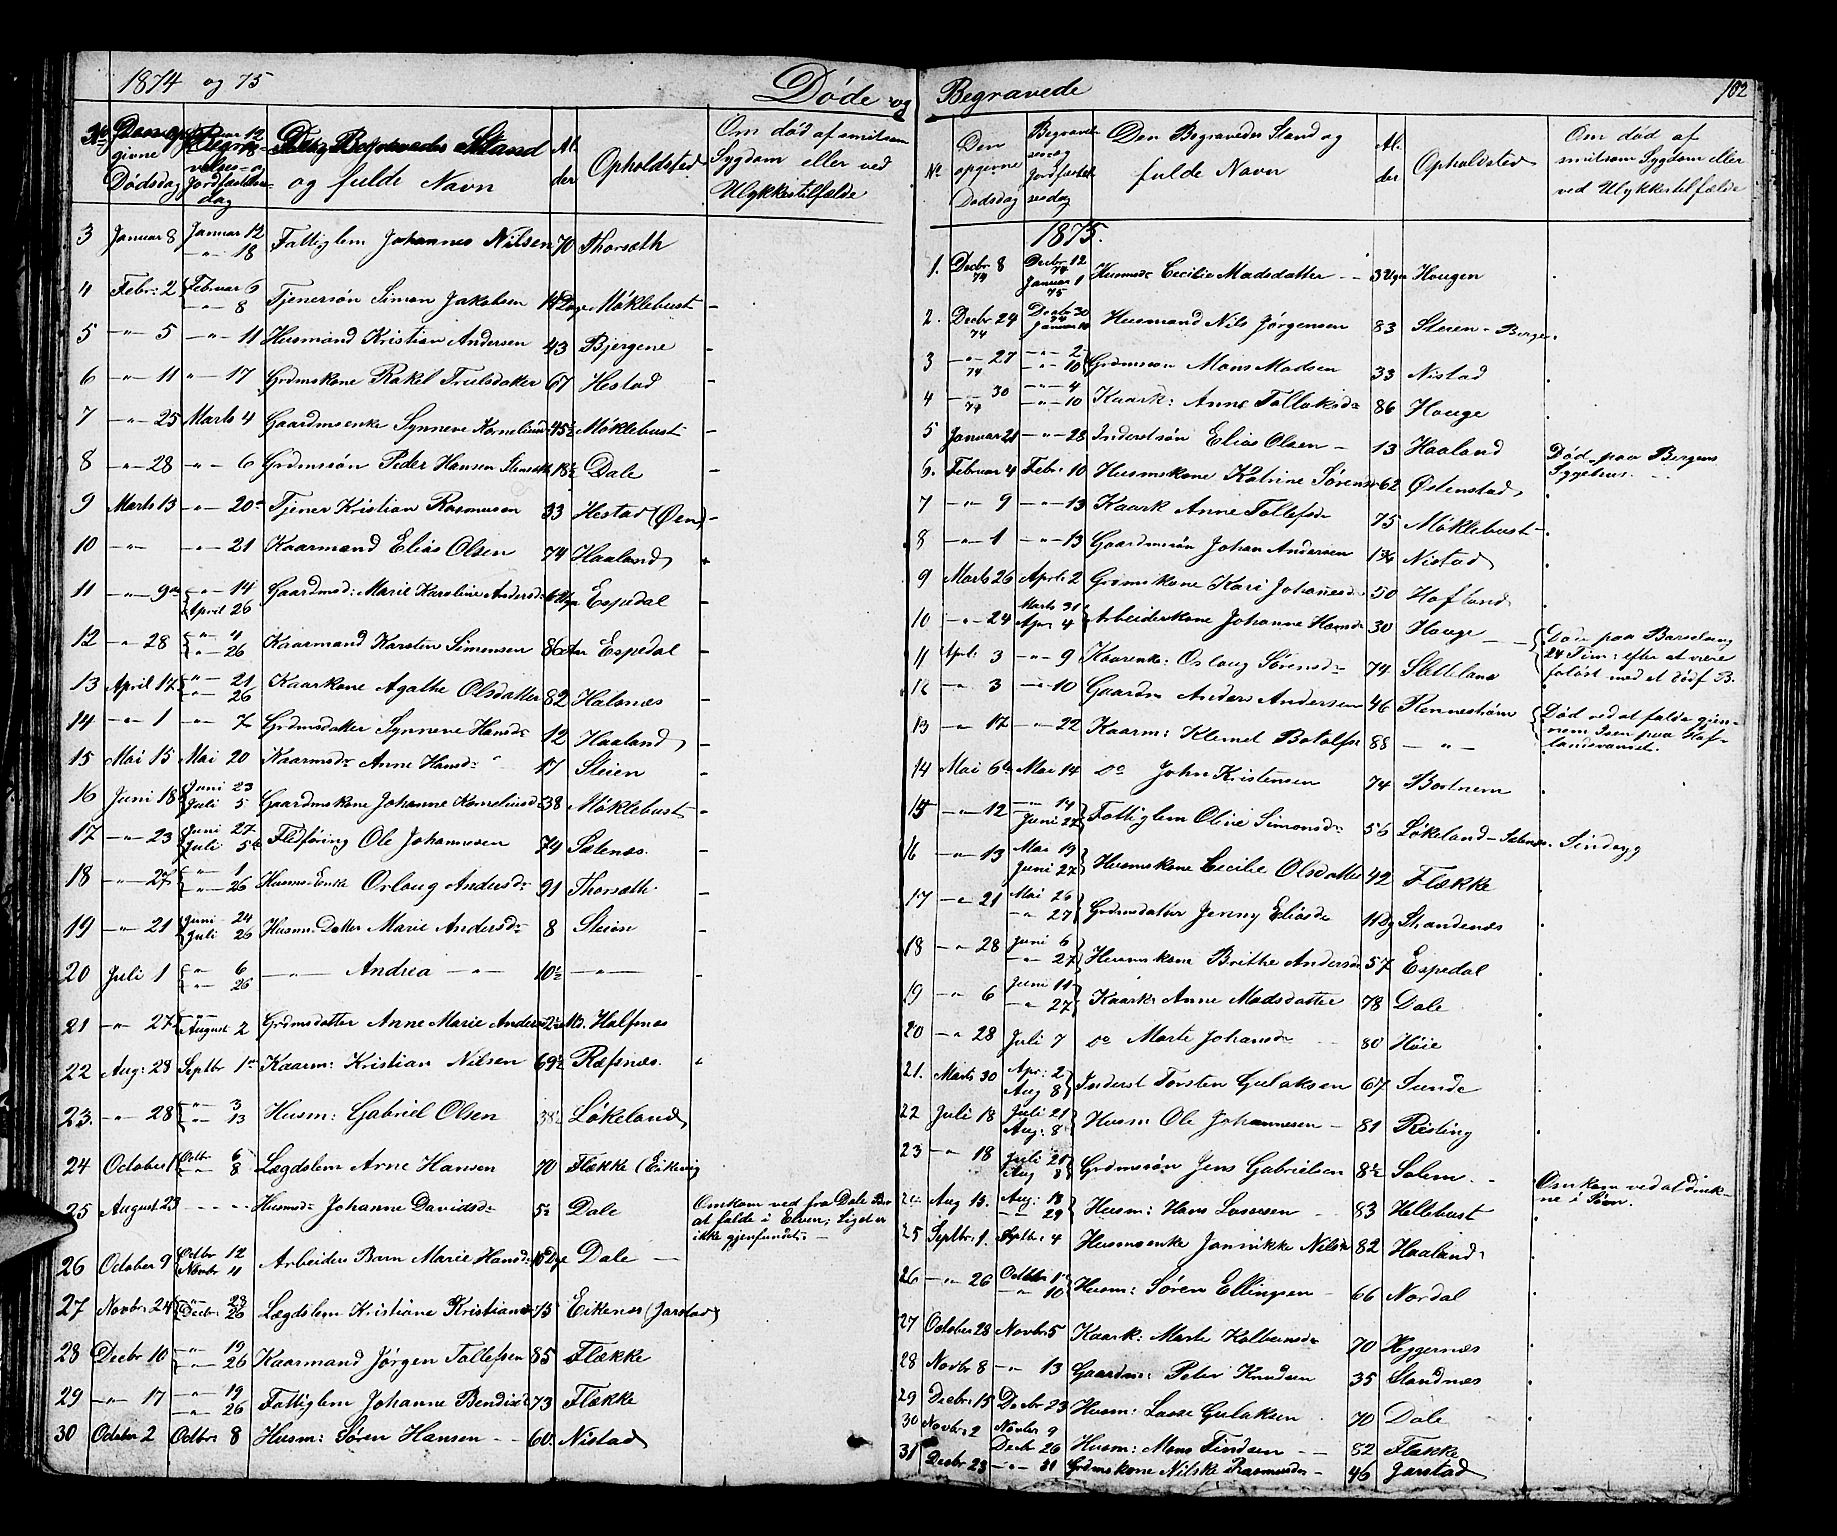 1874 og 75 Døde og
No Den op- givne Dødsdag Begra- velses- og Jordfæstelses- dag Den Begravedes Stand og fulde Navn Al- der Opholdsted Om død af smitsom Sygdom eller ved Ulykkestilfælde
3 Januar 8 Januar 12 -"- 18 Fattiglem Johannes Nilsen 70 Thorsæth
4 Febr: 2 Februar 6 -"- 8 Tjenersøn Simon Jakobsen 14 Dage Møklebust -
5 -"- 5 -"- 11 Husmand Kristian Andersen 43 Bjergene -
6 -"- 11 " - 17 Grdmskone Rakel Trulsdatter 67 Hestad -
7 -"- 25 Marts 4 Gaardmsenke Synneve Kornelius 45½ Møklebust -
8 -"- 28 -"- 6 Grdmssøn Peder Hansen 18½ Dale -
9 Marts 13 -"- 20 Tjener Kristian Rasmusen 33 Hestad (Øen) -
10 -"- -"- 21 Kaarmand Elias Olsen 74 Haaland
11 -"- 9 -"- 14 April 26 Gaardmsd: Marie Karoline Andersd: Espedal -
12 -"- 28 -"- 4 -"- 26 Kaarmand Karsten Simonsen 86 Espedal -
13 April 17 -"- 21 -"- 26 Kaarkone Agathe Olsdatter 82 Halsnæs -
14 -"- 1 -"- 7 Grdmsdatter Synneve Hansd: 12 Haaland -
15 Mai 15 Mai 20 Kaarmsd: Anne Hansd: 17 Steien -
16 Juni 18 Juni 23 Juli 5 Gaardmskone Johanne Korneliusd: 38 Møklebust -
17 -"- 23 Juni 27 Juli 5 Fledføring Ole Johannesen 74 Salenæs. -
18 -"- 27 -"- 1 -"- 26 Husms Enke Orloug Andersd: 91 Thorsæth. -
19 -"- 21 Juni 24 Juli 26 Husm: Datter Marie Andersd: 8 Steien -
20 Juli 1 -"- 6 -"- 26 -"- Andrea -"- 10½ -"- -
21 -"- 27 -"- August 2 Grdmsdatter Anne Marie Anders 2½ M. Halsnæs
22 Aug: 28 Septbr 1 Kaarm: Kristian Nilsen 69½ Ræfsnæs.
23. -"- 28 -"- 3 -"- 13 Husm: Gabriel Olsen 38½ Løkeland
24 October 1 Octbr 6 -"- 8 Lægdslem Arne Hansen 70 Flække (Eikevig
25 August 23 - - - - Husmd: Johanne Davidsd: 5½ Dale Omkom ved fra Dale Bro
at falde i Elven; Liget er
ikke gjenfundet. -
26 October 9 Octbr 12 Novbr 11 Arbeiders Barn Marie Hansd: Dale -
27 Novbr 24 -"- 28 Decbr 26 Lægdslem Kristiane Kristians 75 Eikenæs (Jarstad)
28 Decbr 10 -"- 19 -"- 26 Kaarmand Jørgen Tollefsen 85 Flække
29 -"- 17 -"- 19 -"- 26 Fattiglem Johanne Bendixd: 73 Flække
30 October 2 Octbr: 8 Husm: Søren Hansen - - 60. Nistad
Begravede 102
No Den opgivne Dødsdag Begravel- ses og Jordfæstel- sesdag Den Begravedes Stand og fulde Navn Al- der Opholdsted Om død af smitsom Sygdom eller ved Ulykkestilfælde
1875.
1. Decbr 8 74 Decbr 12 74 Januar 1 75 Husmsd: Cecilie Madsdatter - - 3 Uger Hougen
2. Decbr 24 74 Decbr 30 74 Januar 10 Husmand Nils Jørgensen 83 Steien - Berge.
3 -"- 27 74 -"- 2 -"- 10 Grdmssøn Mons Madsen 33 Nistad
4 -"- 30 74 -"- 4 -"- 10 Kaark: Anne Tolleksd: 86 Houge
5 Januar 21 -"- 28 Inderstsøn Elias Olsen - 13 Haaland Død paa Bergens
Sygehus. - -
6. Februar 4 Febr: 10 Husmskone Katrine Sørensd: 62 Østenstad
7 -"- 9 -"- 13 Kaark Anne Tollefsd: 75 Møklebust
8 -"- 1 -"- 13 Gaardmssøn Johan Andersen Nistad
9 Marts 26 April 2 Grdmskone Kari Johanesd: 50 Hofland
10 -"- 24 Marts 31 Apr: 4 Arbeiderskone Johanne Hansd: 30 Houge - - Død paa Barselseng
24 Tim: efter at være
forløst med et dødf B.
11 April 3 -"- 9 Kaarenk: Orloug Sørensd: 74 Sætteland
12 -"- 3 -"- 10 Gaardm Anders Andersen 46 Rennestrøm Død ved at falde gjen-
nem Isen paa Haf-
landsvandet.
13 -"- 17 -"- 22 Kaarm: Klemet Botolfsen 88 - " -
14 Mai 6te Mai 14 Do John Kristensen 74 Bortnem
15 -"- 12 -"- 14 Juni 27 Fattiglem Oline Simonsd: 56 Løkeland - Salenæs. Sindsyg
16 -"- 13 Mai 19 Juni 27 Husmskone Cecilie Olsdatter 42 Flække
17 -"- 21 Mai 26 -"- 27 Grdmsdatter Jenny Eliasd: 11 Dg Strandenæs
18 -"- 28 Juni 6 -"- 27 Husmskone Brithe Andersd: 57 Espedal
19 -"- 6 Juni 11 -"- 27 Kaark: Anne Madsdatter 78 Dale
20 -"- 28 Juli 7 Do Marte Johansd: 80 Høie
21. Marts 30 Apr: 2 Aug 8 Inderst Torsten Gulaksen 67 Sunde
22 Juli 18 Juli 21 Aug: 8 Husm Ole Johannesen - 81 Risting
23 -"- 18 Juli 21 Aug 8 Grdmssøn Jens Gabrielsen 8½ Solem. - Omkom ved at druk-
ne i Søen.
24 Aug 15. Aug: 18 -"- 29 Husm: Hans Lassesen 83 Hellebust
25 Septbr: 1. Septbr: 4 Husmsenke Jannikke Nilsd: 82 Haaland.
26 -"- 26 Octbr 1 -"- 10 Husm: Søren Ellingsen - 66 Nordal
27 October 28 Novbr: 5 Kaark: Marte Kolbensd: 70 Heggernæs
28 Novbr 8 -"- 13 Gaardm: Peter Knudsen 35 Standnæs
29 Decbr: 15 Decbr 23 Husm: Lasse Gulaksen 70 Dale
30 Novbr: 2 Novbr 9 Decbr 26 Husm: Mons Findsen - - 82 Flække
31 Decbr 23 -"- 31 Grdmskone Nilske Rasmusd: - 46 Jarstad